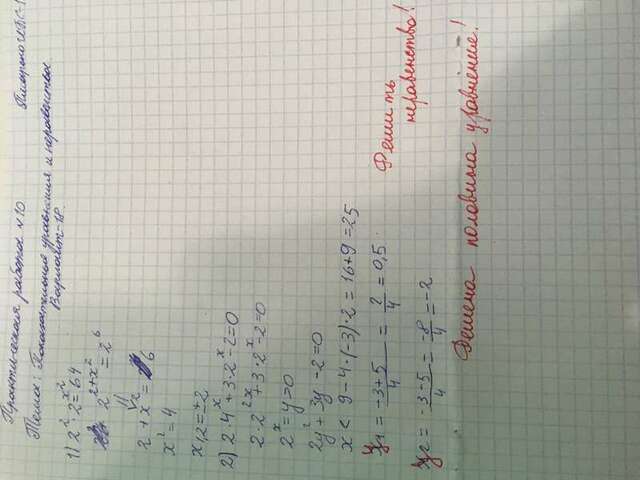 Практическая работа №10
Тема: Показательные уравнения и неравенства.
Вариант-18.
1) 2² · 2^x² = 64
2^2+x² = 2^6
2 + x² = 6
x² = 4
x1,2 = ±2
2) 2·4^x + 3·2^x - 2 = 0
2·2^2x + 3·2^x - 2 = 0
2^x = y > 0
2y² + 3y - 2 = 0
x < 9 - 4·(-3)·2 = 16 + 9 = 25
y1 = -3+5/4 = 2/4 = 0,5
Решить
неравенства!
y2 = -3-5/4 = -8/4 = -2
Решена половина уравнения!